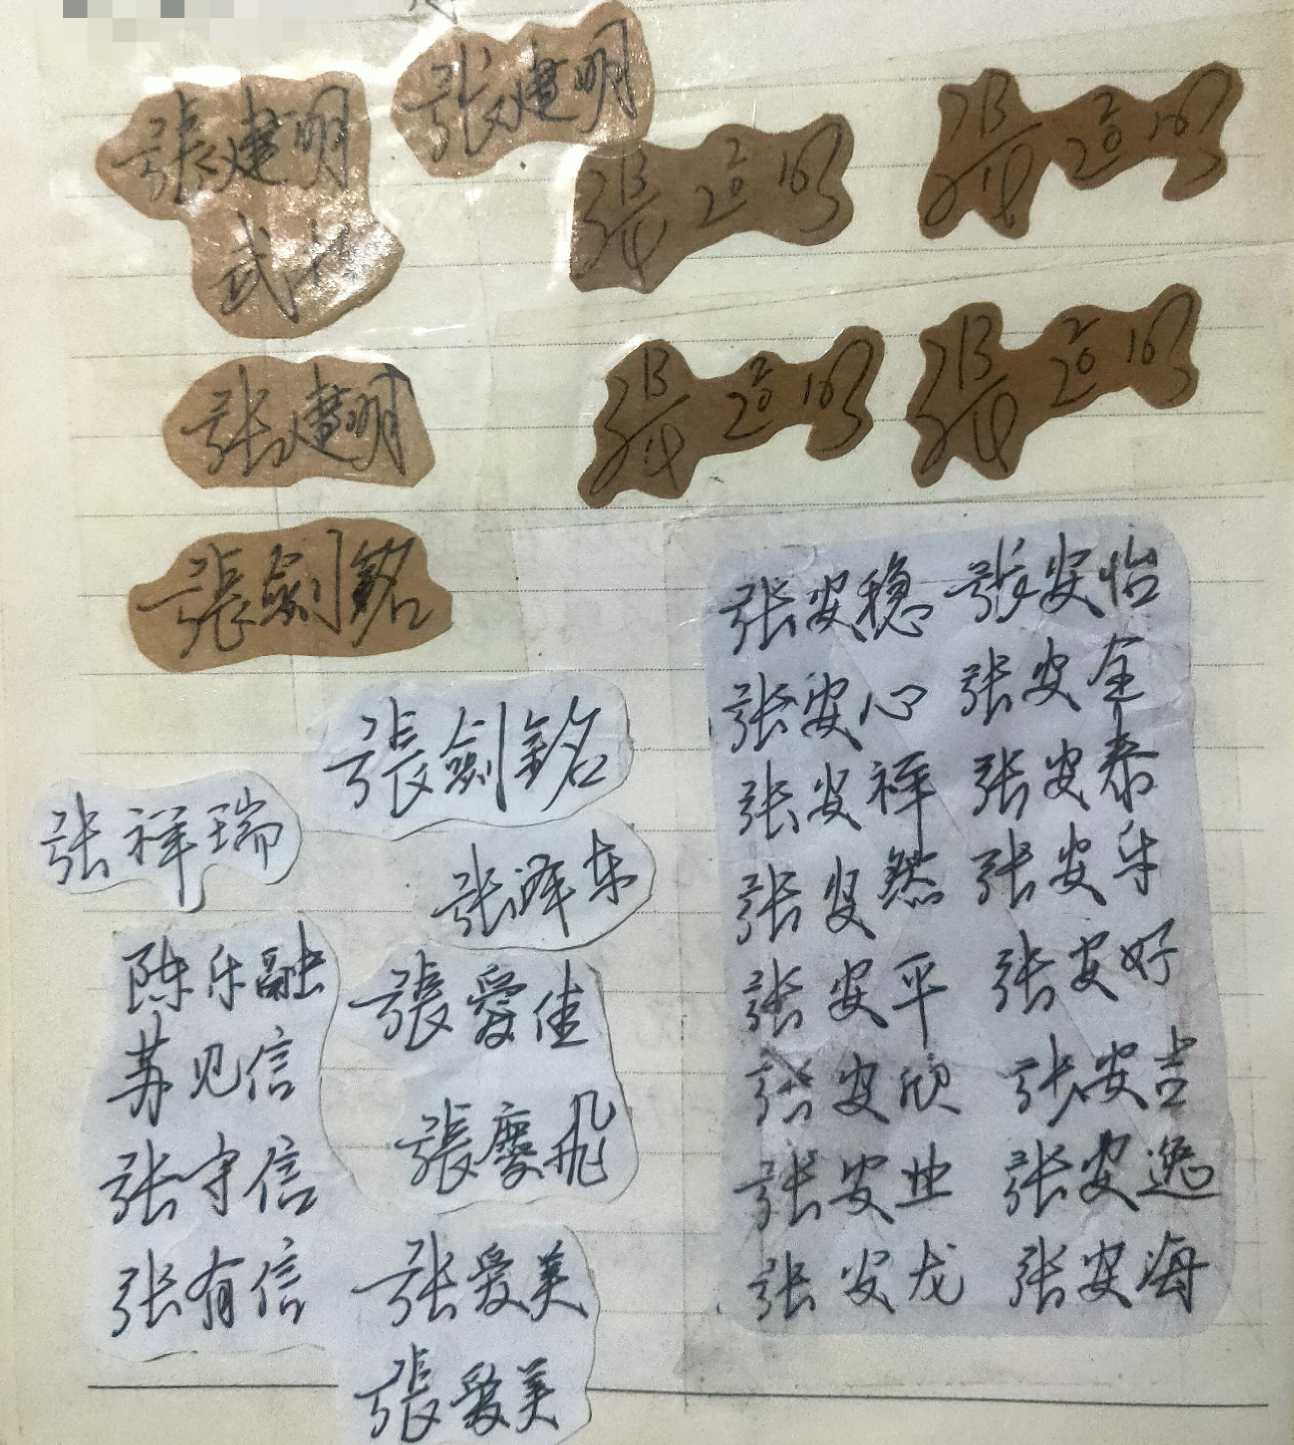 張建明
張建明
武林
张建明
張劍銘
張劍銘
张祥瑞
张泽东
陈乐融
苏见信
张守信
张有信
張愛佳
張慶飛
张爱美
張愛美
张安稳 张安怡
张安心 张安全
张安祥 张安泰
张安然 张安乐
张安平 张安好
张安欣 张安吉
张安业 张安逸
张安龙 张安海